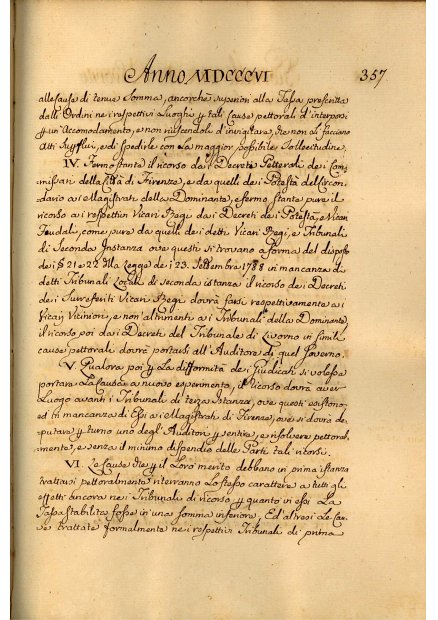 Anno MDCCCVI 357
alle Cause di tenue Somma, ancorchè superiori alla Tassa prescritta
dalli Ordini nei respettivi Luoghi p tali Cause pettorali d'interporsi
p un'Accomodamento, e non riuscendoli d'invigilare, che non si facciano
Atti superflui, e di spedirle con la maggior possibile sollecitudine.
IV. Fermo stante il ricorso dai Decreti Pettorali dei Com
missari della Città di Firenze, e da quelli dei Potestà del Circon
dario ai Magistrati della Dominante, e fermo stante pure il
ricorso ai respettivi Vicari Regi dai Decreti dei Potestà, e Vicari
Feudali, come pure da quelli dei detti Vicari Regi, e Tribunali
di Seconda Instanza ove questi si trovano a forma del disposto
dei § 21 e 22 della Legge dei 23. Settembre 1788 in mancanza di
detti Tribunali Locali di seconda istanza il ricorso dei Decreti
dei surreferiti Vicari Regi dovrà farsi respettivamente ai
Vicari Viciniori, e non altrimenti ai Tribunali della Dominante,
il ricorso poi dai Decreti del Tribunale di Livorno in simili
cause pettorali dovrà portarsi all'Auditore di quel Governo.
V. Qualora poi p la difformità dei Giudicati si volesse
portare la Causa a nuovo esperimento, il Ricorso dovrà aver
Luogo avanti i Tribunali di terza Istanza, ove questi esistono,
ed in mancanza di Essi ai Magistrati di Firenze, ove si dovrà de
putare p turno uno degl'Auditori p sentire, e risolvere pettoral
mente, e senza il minimo dispendio delle Parti tali ricorsi.
VI. Le Cause che p il Loro merito debbano in prima istanza
trattarsi pettoralmente riterranno lo stesso carattere a tutti gli
effetti ancora nei Tribunali di ricorso p quanto in essi La
Tassa stabilita fosse in una somma inferiore, Ed altresì Le Cau
se trattate formalmente nei respettivi Tribunali di prima